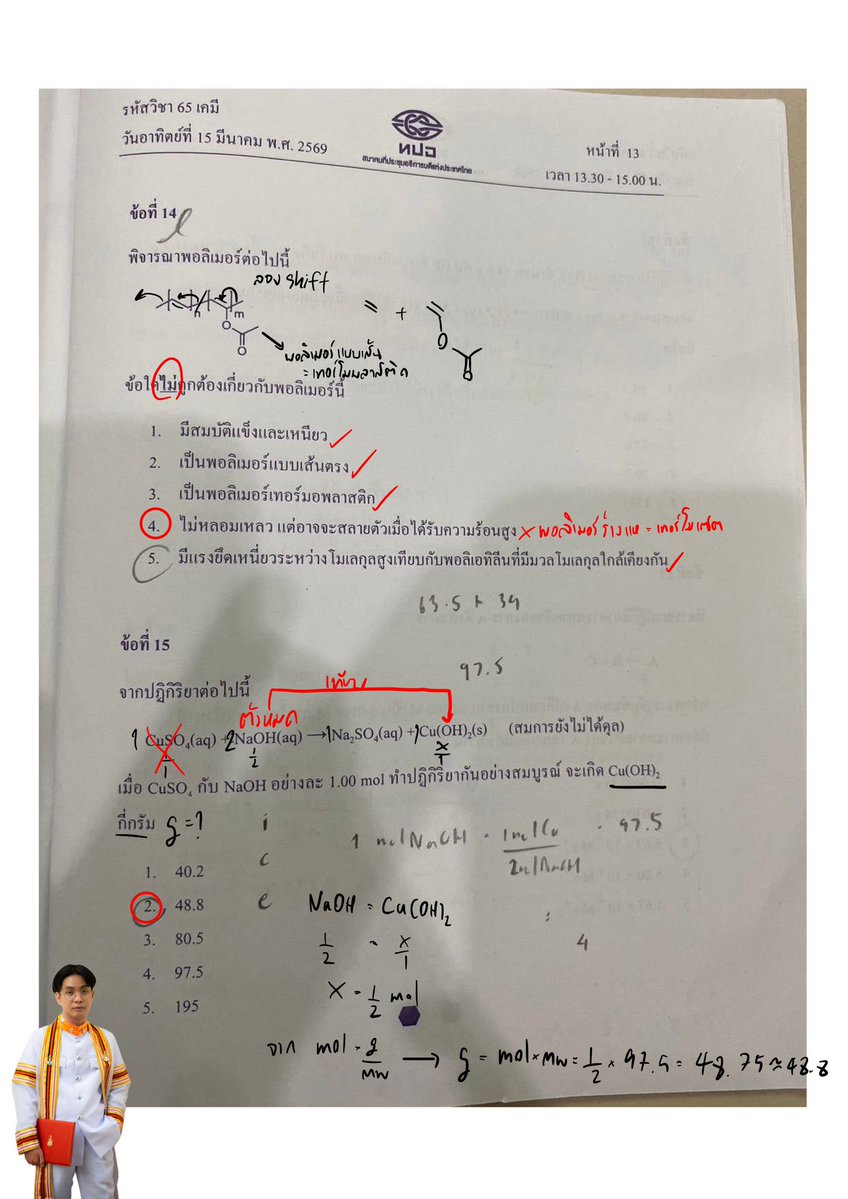 รหัสวิชา 65 เคมี
วันอาทิตย์ที่ 15 มีนาคม พ.ศ. 2569
ทปอ
สมาคมที่ประชุมอธิการบดีแห่งประเทศไทย
หน้าที่ 13
เวลา 13.30 - 15.00 น.
ข้อที่ 14
พิจารณาพอลิเมอร์ต่อไปนี้
ลอง shift
n m
O
O
= + O
O
พอลิเมอร์แบบเส้น
= เทอร์โมพลาสติก
ข้อใดไม่ถูกต้องเกี่ยวกับพอลิเมอร์นี้
1. มีสมบัติแข็งและเหนียว ✓
2. เป็นพอลิเมอร์แบบเส้นตรง ✓
3. เป็นพอลิเมอร์เทอร์มอพลาสติก ✓
4. ไม่หลอมเหลว แต่อาจจะสลายตัวเมื่อได้รับความร้อนสูง × พอลิเมอร์ร่างแห = เทอร์โมเซต
5. มีแรงยึดเหนี่ยวระหว่างโมเลกุลสูงเทียบกับพอลิเอทิลีนที่มีมวลโมเลกุลใกล้เคียงกัน ✓
63.5 + 34
ข้อที่ 15
97.5
จากปฏิกิริยาต่อไปนี้
เทียบ
ตัวหมด
1 CuSO₄(aq) + 2 NaOH(aq) → 1 Na₂SO₄(aq) + 1 Cu(OH)₂(s) (สมการยังไม่ได้ดุล)
1/1 1/2 x/1
เมื่อ CuSO₄ กับ NaOH อย่างละ 1.00 mol ทำปฏิกิริยากันอย่างสมบูรณ์ จะเกิด Cu(OH)₂
กี่กรัม g = ?
i
c
e
1 mol NaOH × 1 mol Cu / 2 mol NaOH × 97.5
1. 40.2
2. 48.8
3. 80.5
4. 97.5
5. 195
NaOH = Cu(OH)₂
1/2 = x/1
x = 1/2 mol
4
จาก mol = g/MW → g = mol × MW = 1/2 × 97.5 = 48.75 ≈ 48.8